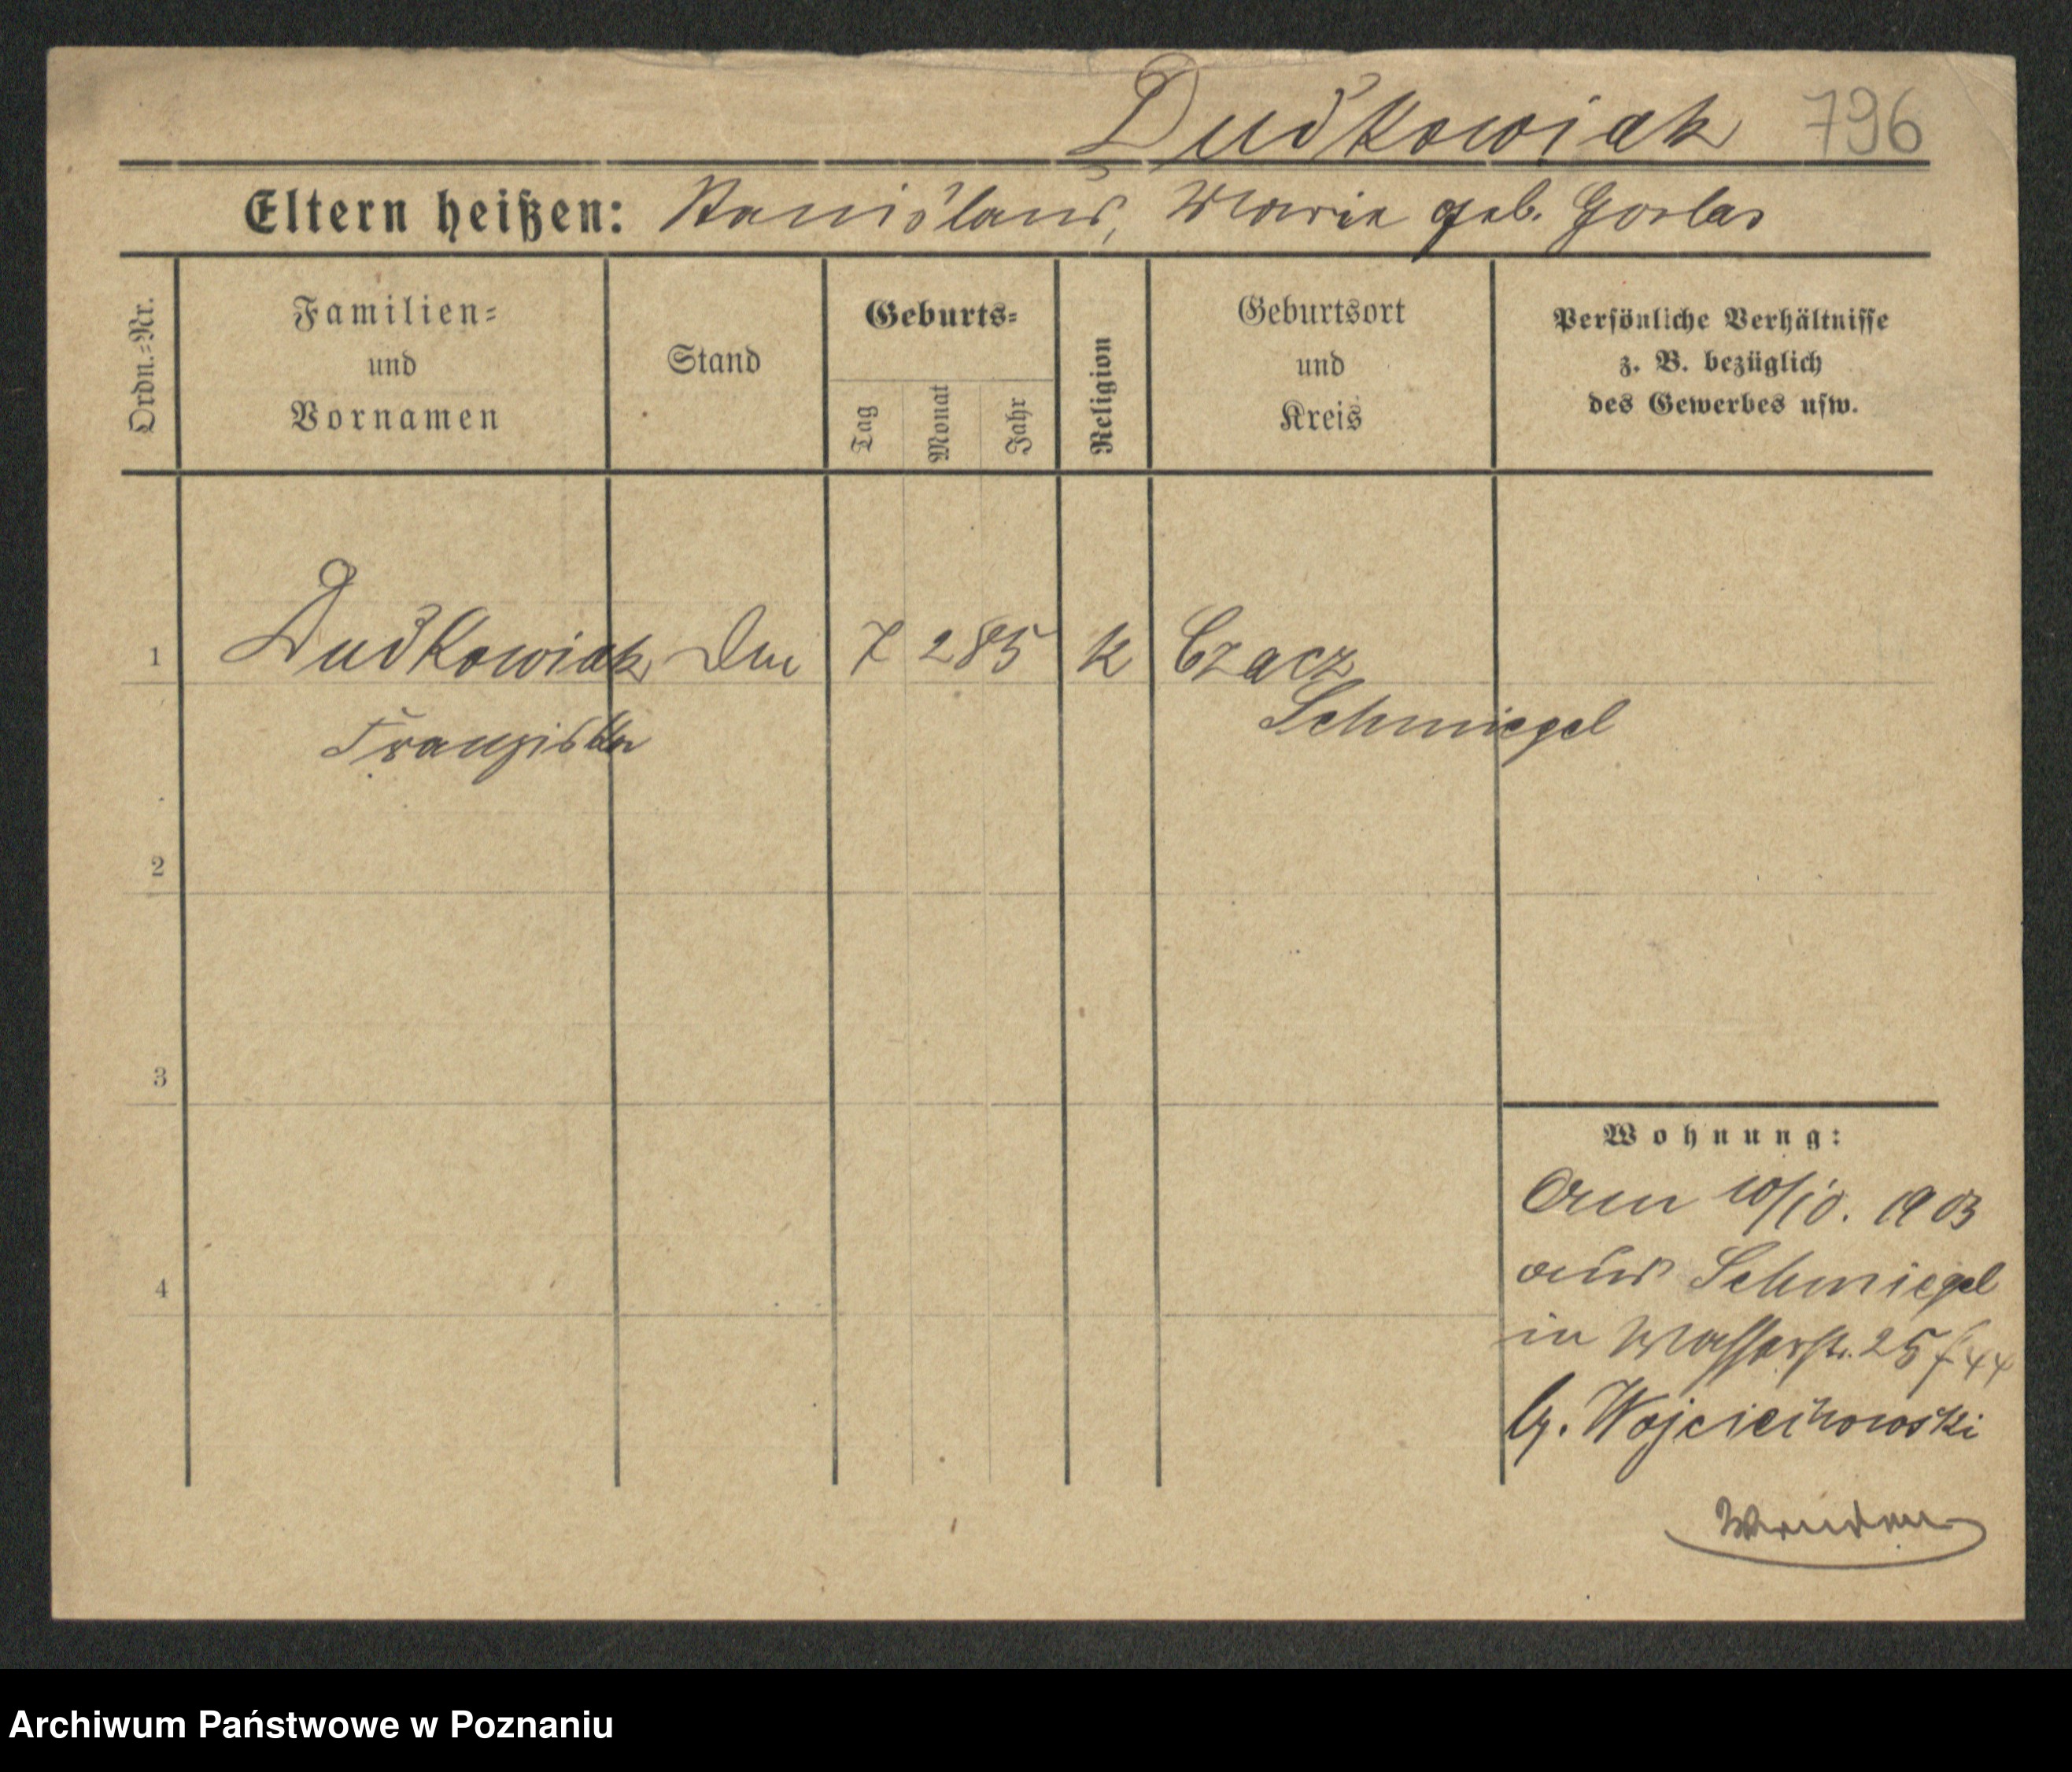 Dudkowiak 796
Eltern heißen: Stanislaus, Marie geb. Gorlas
Ordn.=Nr.
Familien=
und
Vornamen
Stand
Geburts=
Tag
Monat
Jahr
Religion
Geburtsort
und
Kreis
Persönliche Verhältnisse
z. B. bezüglich
des Gewerbes usw.
1 Dudkowiak 7 2 85 k Czacz
Franziska Schmiegel
2
3
4
Wohnung:
Am 10/10. 1903
aus Schmiegel
in Wasserstr. 25
Wojciechowski
Archiwum Państwowe w Poznaniu